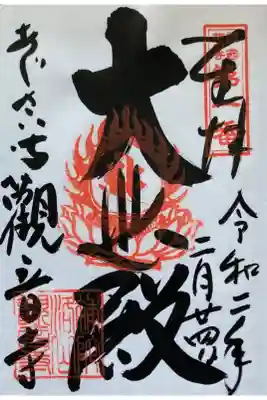 奉拝
令和二年
二月廿四日
大悲殿
あじさい寺
觀音寺